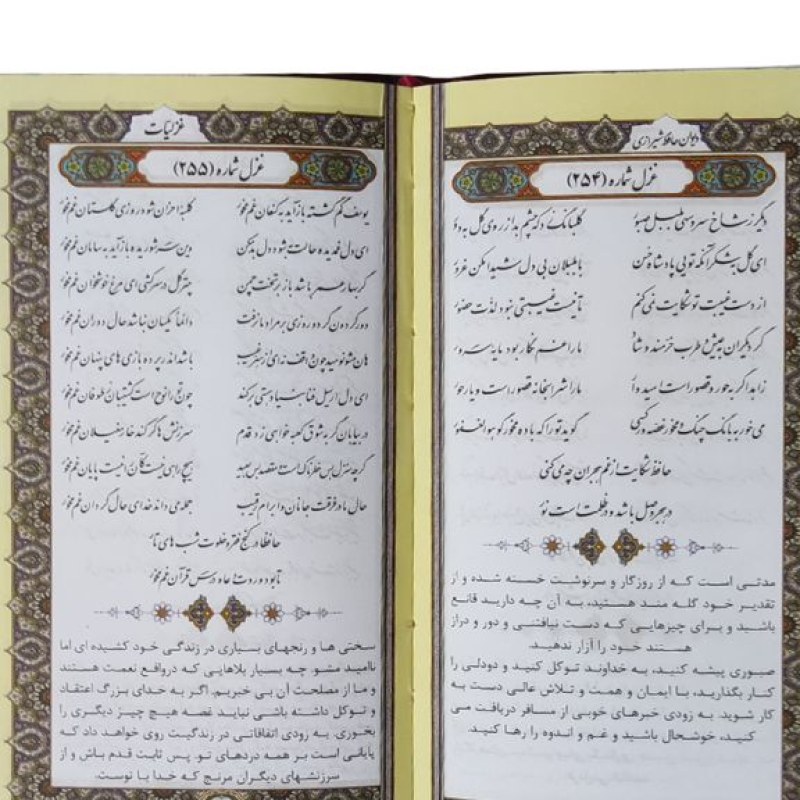 دیوان حافظ شیرازی
غزل شماره (۲۵۴)
دیگر ز شاخ سرو سهی بلبل صبور
گلبانگ زد که چشم بد از روی گل به دور
ای گل به شکر آنکه تویی پادشاه حسن
با بلبلان بی دل شیدا مکن غرور
از دست غیبت تو شکایت نمی کنم
تا نیست غیبتی نبود لذت حضور
گر دیگران به عیش و طرب خرمند و شاد
ما را غم نگار بود مایه سرور
زاهد اگر به حور و قصور است امیدوار
ما را شرابخانه قصور است و یار حور
می خور به بانگ چنگ و مخور غصه ور کسی
گوید تو را که باده مخور گو هو الغفور
حافظ شکایت از غم هجران چه می کنی
در هجر وصل باشد و در ظلمت است نور
مدتی است که از روزگار و سرنوشت خسته شده و از
تقدیر خود گله مند هستید، به آن چه دارید قانع
باشید و برای چیزهایی که دست نیافتنی و دور و دراز
هستند خود را آزار ندهید.
صبوری پیشه کنید، به خداوند توکل کنید و دودلی را
کنار بگذارید، با ایمان و همت و تلاش عالی دست به
کار شوید. به زودی خبرهای خوبی از مسافر دریافت می
کنید، خوشحال باشید و غم و اندوه را رها کنید.
غزلیات
غزل شماره (۲۵۵)
یوسف گم گشته باز آید به کنعان غم مخور
کلبه احزان شود روزی گلستان غم مخور
ای دل غمدیده حالت به شود دل بد مکن
وین سر شوریده باز آید به سامان غم مخور
گر بهار عمر باشد باز بر تخت چمن
چتر گل در سر کشی ای مرغ خوشخوان غم مخور
دور گردون گر دو روزی بر مراد ما نرفت
دائماً یکسان نباشد حال دوران غم مخور
هان مشو نومید چون واقف نه ای از سر غیب
باشد اندر پرده بازی های پنهان غم مخور
ای دل ار سیل فنا بنیاد هستی بر کند
چون تو را نوح است کشتیبان ز طوفان غم مخور
در بیابان گر به شوق کعبه خواهی زد قدم
سرزنش ها گر کند خار مغیلان غم مخور
گرچه منزل بس خطرناک است و مقصد بس بعید
هیچ راهی نیست کان را نیست پایان غم مخور
حال ما در فرقت جانان و ابرام رقیب
جمله می داند خدای حال گردان غم مخور
حافظا در کنج فقر و خلوت شب های تار
تا بود وردت دعا و درس قرآن غم مخور
سختی ها و رنجهای بسیاری در زندگی خود کشیده ای اما
ناامید مشو. چه بسیار بلاهایی که درواقع نعمت هستند
و ما از مصلحت آن بی خبریم. اگر به خدای بزرگ اعتقاد
و توکل داشته باشی نباید غصه هیچ چیز دیگری را
بخوری. به زودی اتفاقاتی در زندگیت روی خواهد داد که
پایانی است بر همه دردهای تو. پس ثابت قدم باش و از
سرزنشهای دیگران مرنج که خدا با توست.